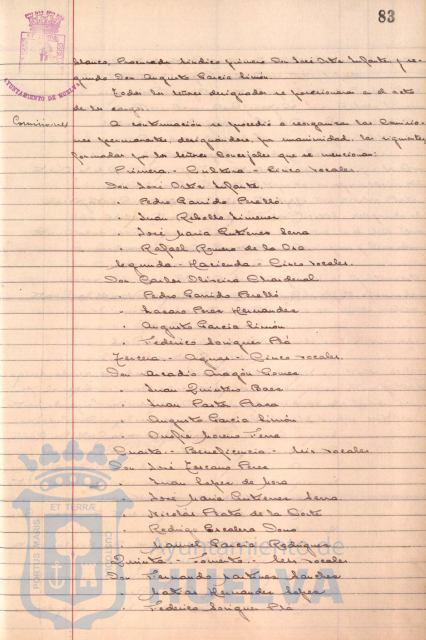 83
AYUNTAMIENTO DE HUELVA
Blanco, Procurador Síndico primero Don José Ortiz Infante, y se-
gundo Don Augusto García Simón.
Todos los señores designados se posesionaron en el acto
de los cargos.
Comisiones
A continuación se procedió a reorganizar las Comisio-
nes permanentes, designándose, por unanimidad, las siguientes,
formadas por los señores Concejales que se mencionan:
Primera.- Cultura.- Cinco vocales.
Don José Ortiz Infante.
" Pedro Garrido Perelló
" Juan Rebollo Jimenez
" José María Gutiérrez Serra
" Rafael Romero de la Osa
Segunda.- Hacienda.- Cinco vocales.
Don Carlos Oliveira Chardenal
" Pedro Garrido Perelló
" Lázaro Pérez Hernández
" Augusto García Simón
" Federico
Tercera.- Aguas.- Cinco vocales.
Don Arcadio Aragón Gómez
" Juan Quintero Báez
" Juan
" Augusto García Simón
" Onofre Moreno
Cuarta.- Beneficencia.- Seis vocales
Don José Pérez
" Juan López de
" José María Gutiérrez Serra
" Nicolás de la Corte
" Rodrigo Escalera
" Manuel García Rodríguez
Quinta.- Fomento.- Seis vocales
Don Fernando Martínez Sánchez
" Matías Hernández López
" Federico
PORTUS MARIS ET TERRAE CUSTODIA
Ayuntamiento de
HUELVA